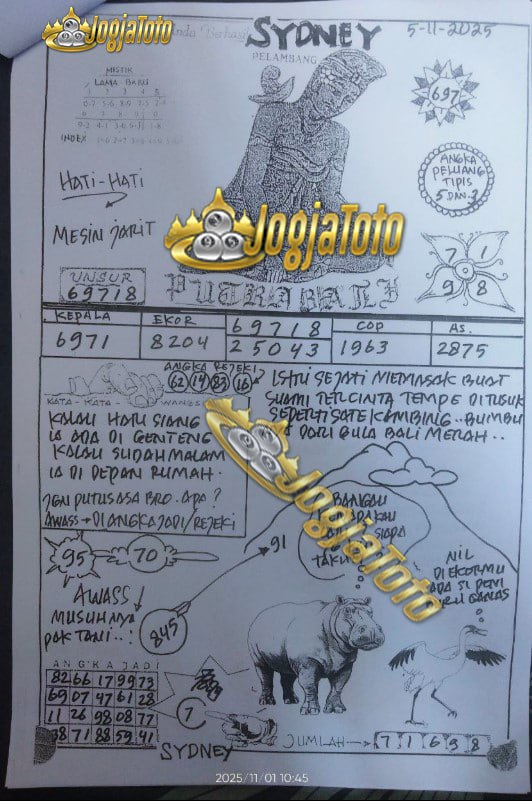 JogjaToto
SYDNEY
5-11-2025
PELAMBANG
MISTIK
LAMA BARU
INDEX
697
HATI-HATI
MESIN JARIT
ANGKA
PELUANG
TIPIS
5 DAN 3
JogjaToto
7 1
9 8
UNSUR
69718
PUTRA BALI
KEPALA
6971
EKOR
8204
69718
25043
COP
1963
AS.
2875
ANGKA REJEKI?
62 14 83 16
KATA - KATA - WANGS
KALAU HARI SIANG
IA ADA DI GENTENG
KALAU SUDAH MALAM
IA DI DEPAN RUMAH.
JGN PUTUS ASA BRO. APA?
AWASS → DI ANGKA JADI/REJEKI
ISTRI SEJATI MEMASAK BUAT
SUAMI TERCINTA TEMPE DI TUSUK
SEPERTI SATE KAMBING.. BUMBU
DARI GULA BALI MERAH..
JogjaToto
BANGAU
SIAPA
TAKU
95
70
91
AWASS!
MUSUHNYA
PAK TANI..:
845
NIL
DI EKORMU
ADA SI PENI
RU GANAS
ANGKA JADI
82 66 17 99 73
69 07 47 61 28
11 26 98 08 77
38 71 88 59 41
7
SYDNEY
JUMLAH → 7 1 6 3 8
2025/11/01 10:45